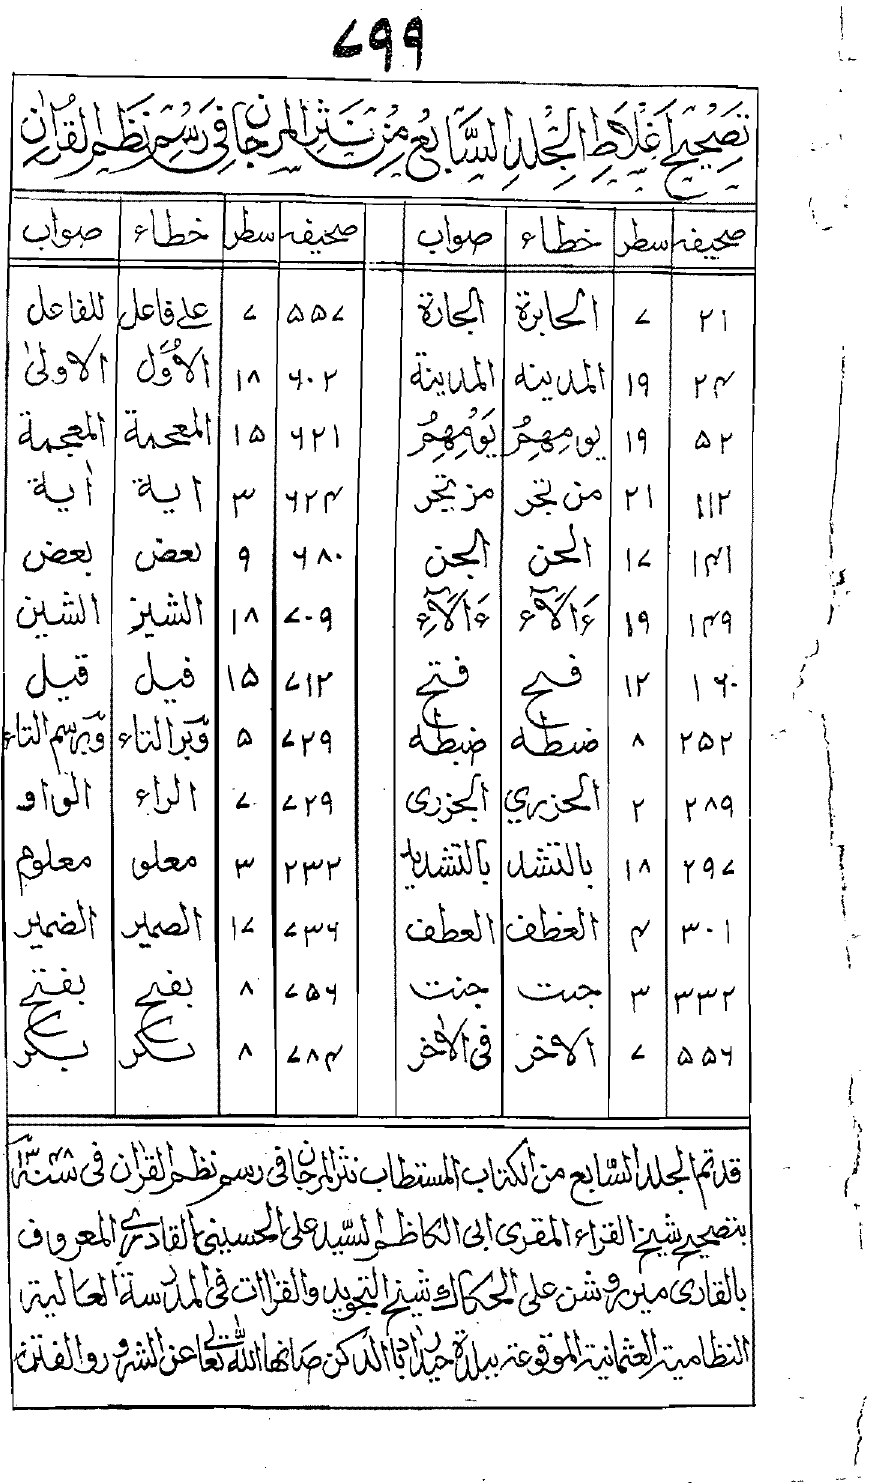 ۷۹۹
تَصْحِيْحُ اَغْلَاطِ الْجُلدِ السَّابِعُ مِنْ نَثْرِ الْمَرجَانِ فِیْ رَسْمِ نَظمِ الْقُرْاٰنِ
صحیفه سطر خطاء صواب صحیفه سطر خطاء صواب
۲۱ ۷ الحابرة الجارة ۵۵۷ ۷ علے فاعل للفاعل
۲۴ ۱۹ المدینه المدینة ۶۰۲ ۱۸ الاُوَل الاولیٰ
۵۲ ۱۹ یومِهِمُ یَوْمِهِمُ ۶۲۱ ۱۵ المعحمة المعجمة
۱۱۲ ۲۱ من تجر مز تجر ۶۲۴ ۳ ایة اٰیة
۱۴۱ ۱۷ الحن الجن ۶۸۰ ۹ نعض بعض
۱۴۹ ۱۹ ءَالَآءَ ءَالَآءِ ۷۰۹ ۱۸ الشیز الشین
۱۶۰ ۱۲ فح فتح ۷۱۲ ۱۵ فیل قیل
۲۵۲ ۸ ضطه ضبطه ۷۲۹ ۵ وّبرالتاء وّبرسم التاء
۲۸۹ ۲ الحزري الجزری ۷۲۹ ۷ الراء الواو
۲۹۷ ۱۸ بالتشد بالتشدید ۲۳۲ ۳ معلو معلوم
۳۰۱ ۴ الغطف العطف ۷۳۶ ۱۷ الصمیر الضمیر
۳۳۲ ۳ جت جنت ۷۵۶ ۸ بفح بفتح
۵۵۶ ۷ الاخر فی الاٰخر ۷۸۴ ۸ سکر بکر
قد تم الجلد السّابع من الکتاب المستطاب نثر المرجان فی رسم نظم القراٰن فی سنة ۱۳۴۸
بتصحیح شیخ القراء المقری ابی الکاظم السّید علی الحسینی القادری المعروف
بالقاری میر روشن علی الحکاک شیخ التجوید والقراٰت فی المدرسة العالیة
النظامیة العثمانیة الموقوعة ببلدة حیدراٰباد الدکن صانها اللّٰه تعالٰی عن الشرور والفتن